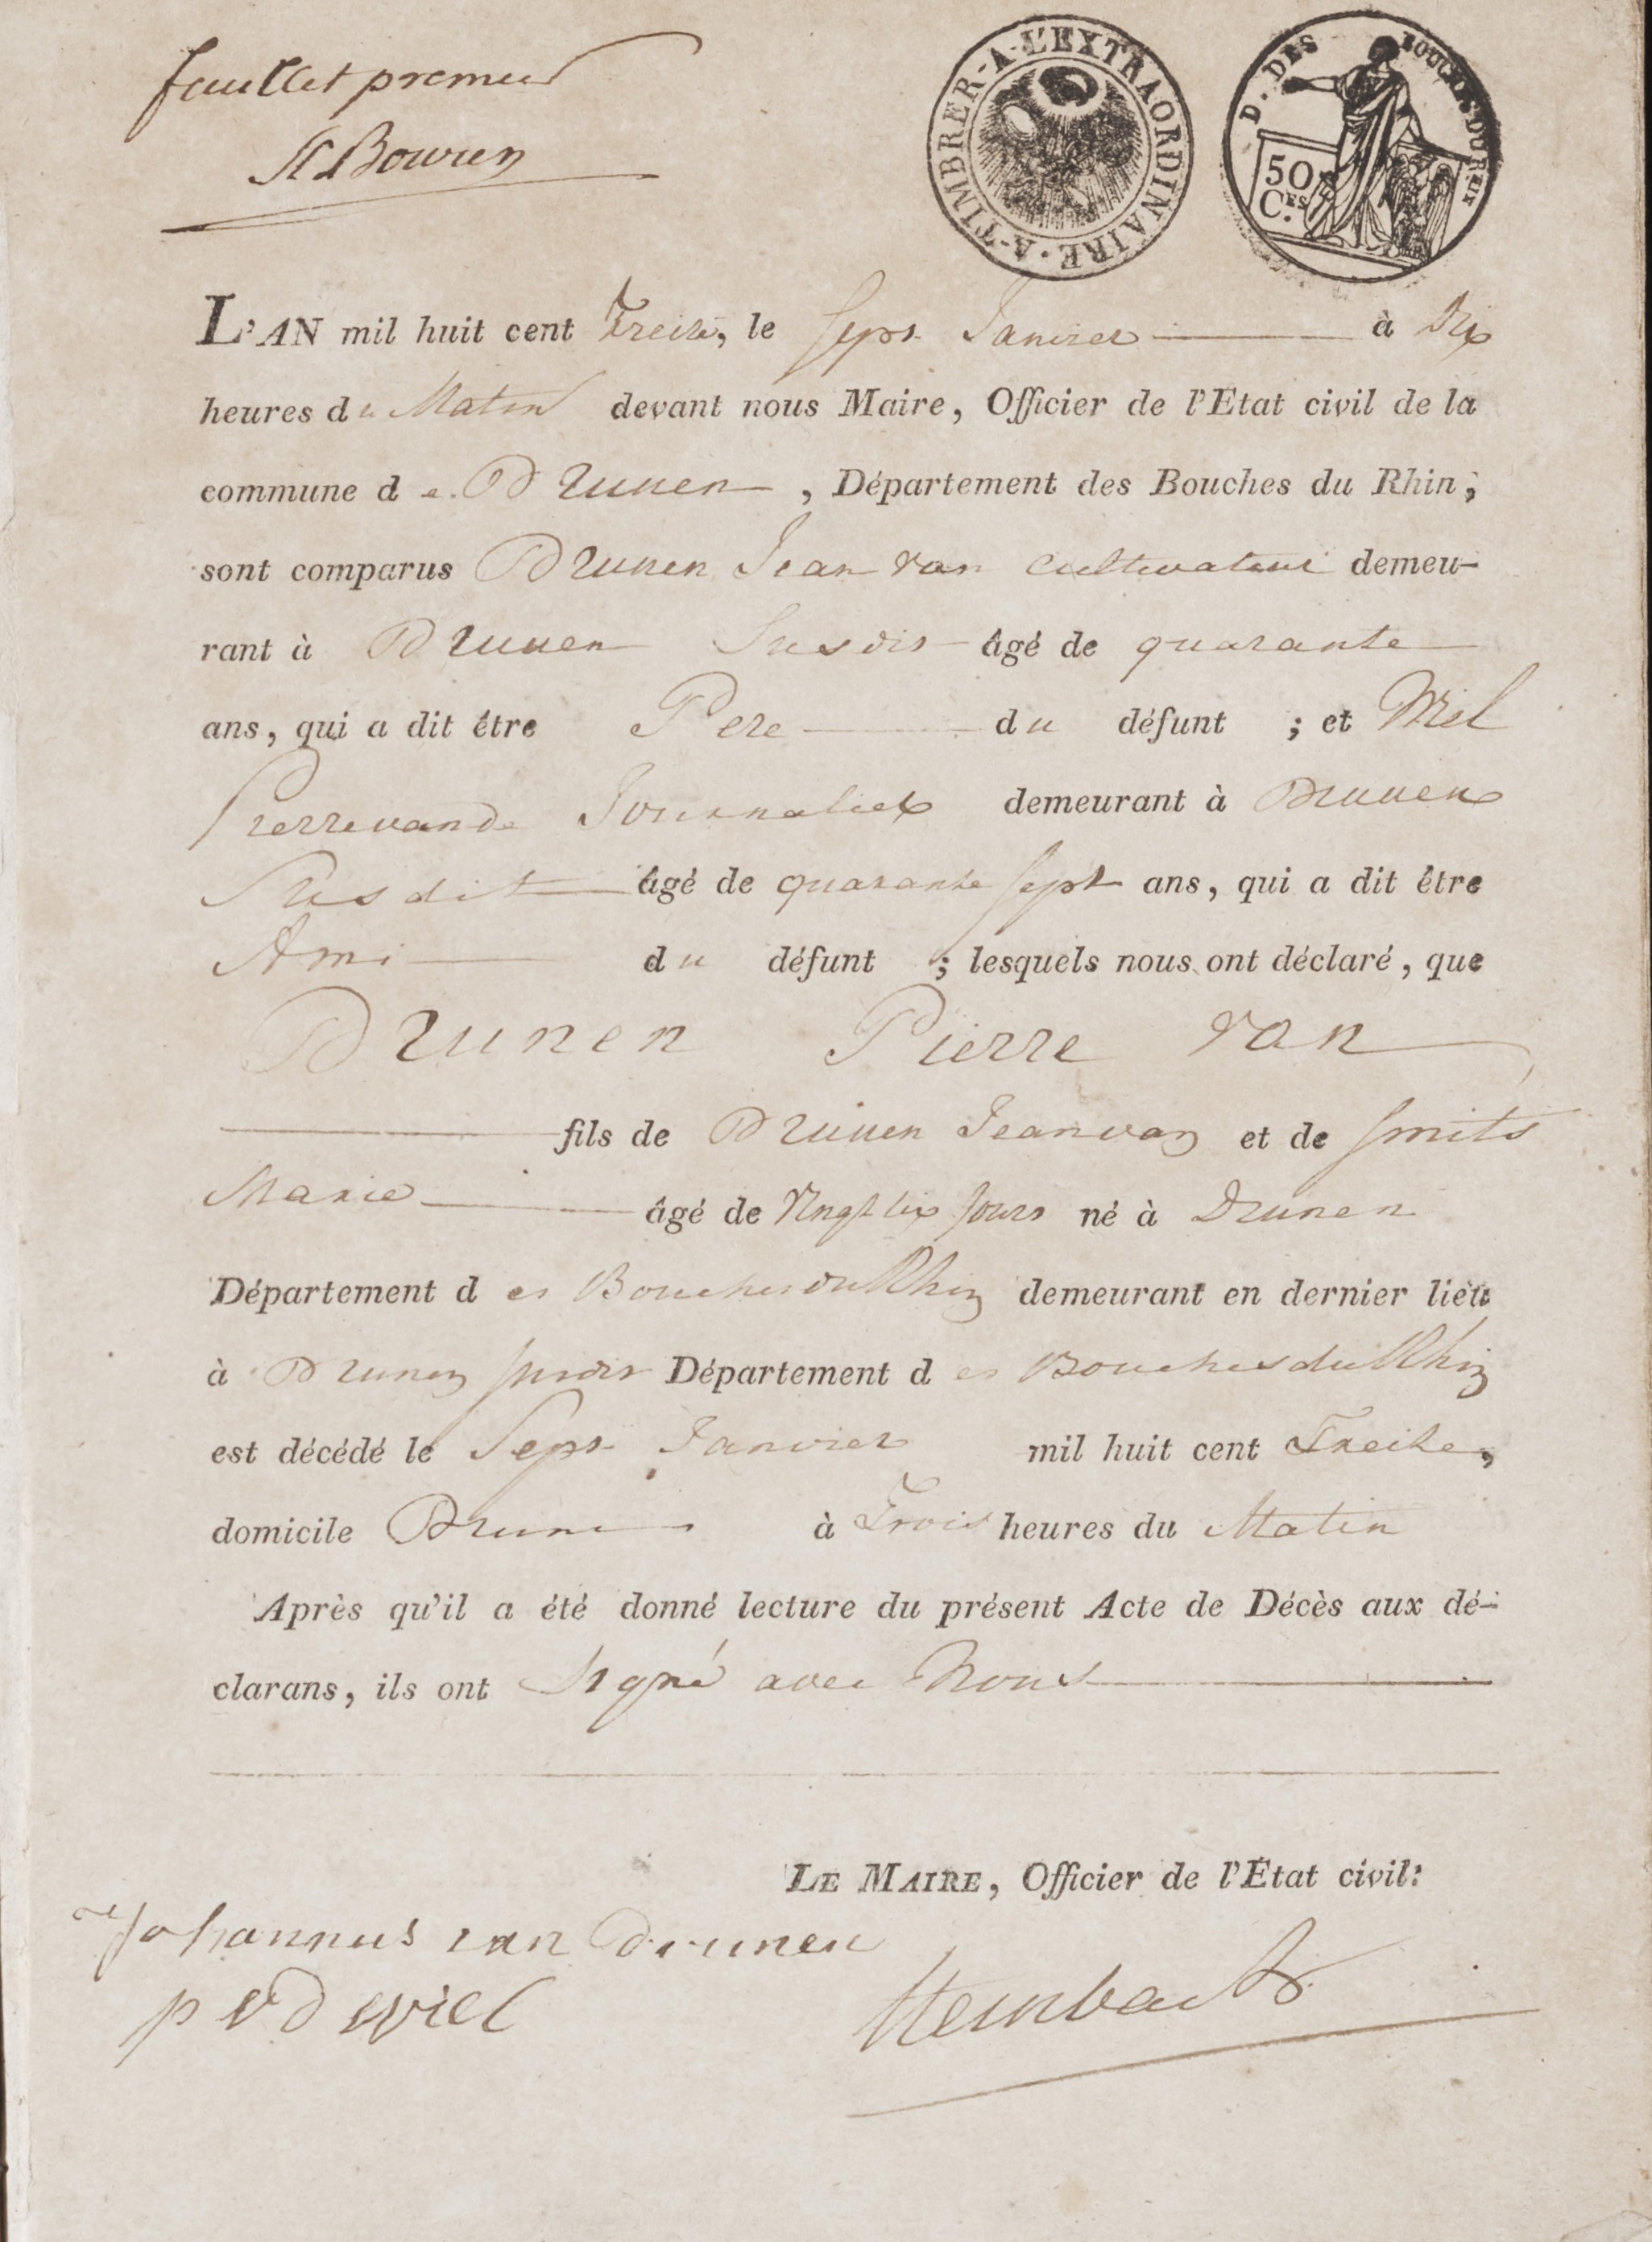 feuillet premier
A-TIMBRER-A-L'EXTRAORDINAIRE
D. DES BOUCHES DU RHIN
50 C.ES
L'AN mil huit cent Treize, le Sept Janvier à Dix
heures du Matin devant nous Maire, Officier de l'Etat civil de la
commune de Drunen, Département des Bouches du Rhin;
sont comparus Drunen Jean van Cultivateur demeu-
rant à Drunen Susdit âgé de quarante
ans, qui a dit être Pere du défunt ; et Wiel
Pierre van de Journalier demeurant à Drunen
Susdit âgé de quarante Sept ans, qui a dit être
Ami du défunt ; lesquels nous ont déclaré, que
Drunen Pierre van
fils de Drunen Jean van et de Smits
Marie âgé de Jours né à Drunen
Département des Bouches du Rhin demeurant en dernier lieu
à Drunen susdit Département des Bouches du Rhin
est décédé le Sept Janvier mil huit cent Treize,
domicile Drunen à Trois heures du Matin
Après qu'il a été donné lecture du présent Acte de Décès aux dé-
clarans, ils ont Signé avec Nous
LE MAIRE, Officier de l'État civil:
Johannus van Drunen
p v d wiel